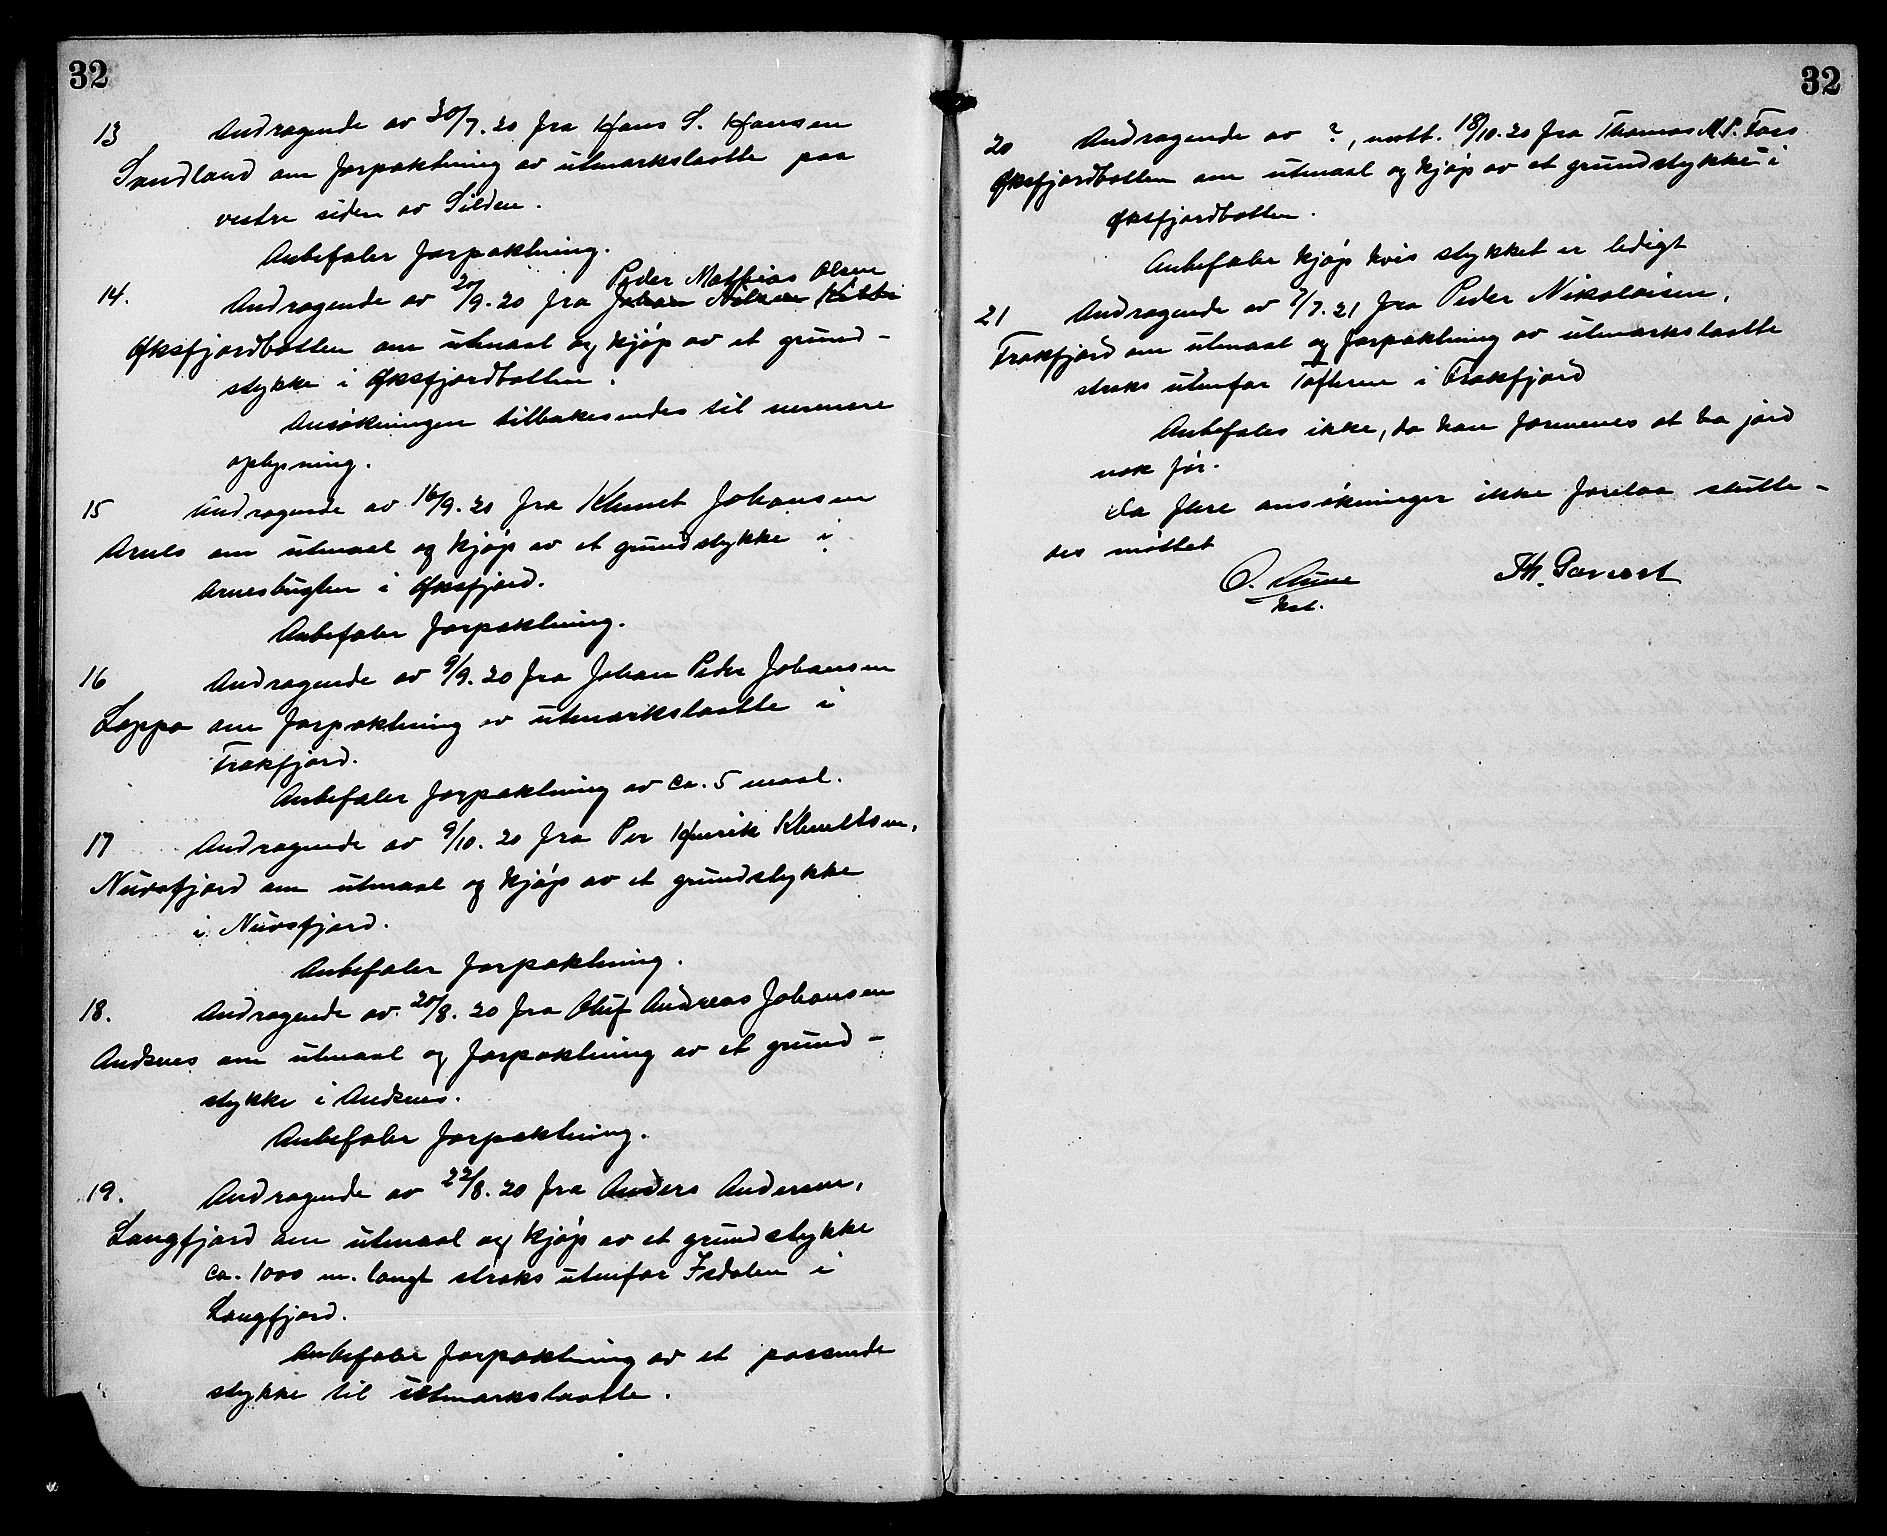 32
13 Andragende av 30/7.20 fra Hans S. Hansen
Sandland om forpaktning av utmarksslaatte paa
vestre siden av Silden.
Anbefaler forpaktning.
Peder Mathias Olsen
14. Andragende av 20/9.20 fra Johan Nilsen Kitti
Øksfjordbotten om utmaal og kjøp av et grund-
stykke i Øksfjordbotten.
Ansøkningen tilbakesendes til nærmere
oplysning.
15 Andragende av 16/9.20 fra Klemet Johansen
Arnes om utmaal og kjøp av et grundstykke i
Arnesbugten i Øksfjord.
Anbefaler forpaktning.
16 Andragende av 9/9.20 fra Johan Peder Johansen
Loppa om forpaktning av utmarksslaatte i
Frakfjord.
Anbefaler forpaktning av ca. 5 maal.
17 Andragende av 9/10.20 fra Per Henrik Klemetsen,
Nuvsfjord om utmaal og kjøp av et grundstykke
i Nuvsfjord.
Anbefaler forpaktning.
18. Andragende av 20/8.20 fra Oluf Andreas Johansen
Andsnes om utmaal og forpaktning av et grund-
stykke i Andsnes.
Anbefaler forpaktning.
19. Andragende av 22/8.20 fra Anders Andersen,
Langfjord om utmaal og kjøp av et grundstykke
ca. 1000 m. langt straks utenfor Isdalen i
Langfjord.
Anbefaler forpaktning av et passende
stykke til utmarksslaatte.
32
20 Andragende av ?, mott. 18/10.20 fra Thomas M.P. Foss
Øksfjordbotten om utmaal og kjøp av et grundstykke i
Øksfjordbotten.
Anbefaler kjøp hvis stykket er ledigt
21 Andragende av 7/7.21 fra Peder Nikolaisen,
Frakfjord om utmaal og forpaktning av utmarksslaatte
straks utenfor Tofterne i Frakfjord
Anbefales ikke, da han formenes at ha jord
nok før.
Da flere ansøkninger ikke forelaa slutte-
des møttet
O.
Th.